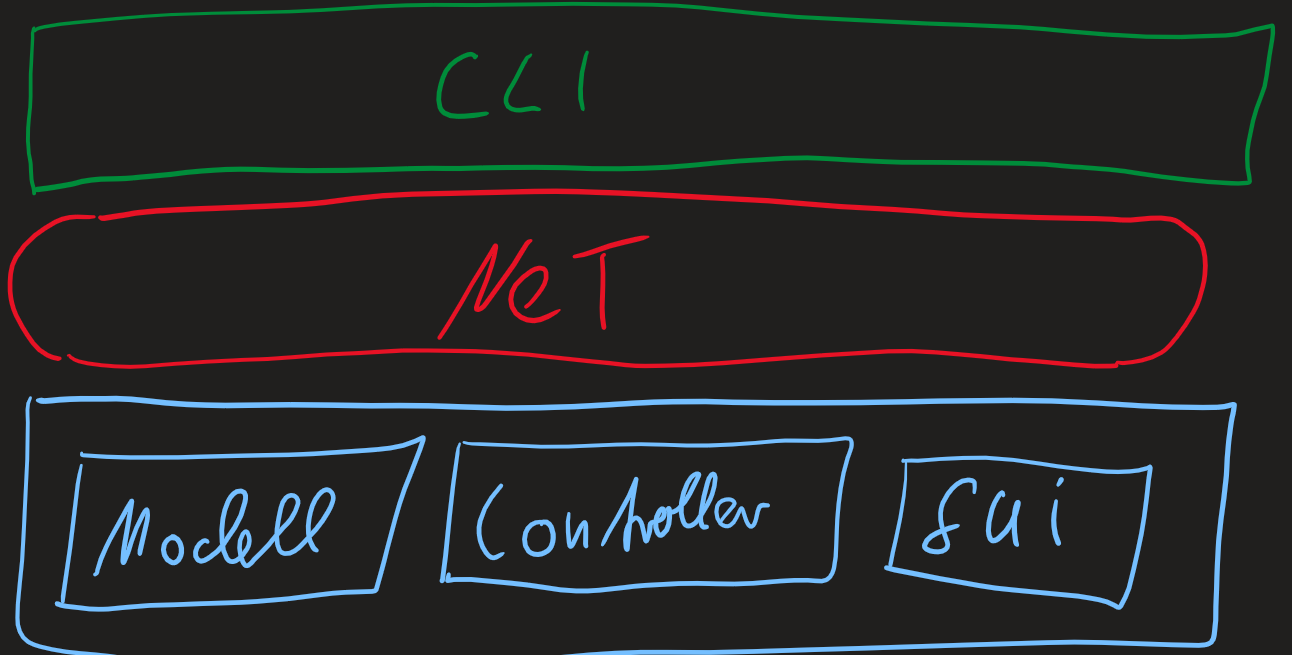 CLI
NeT
Modell Controller gui